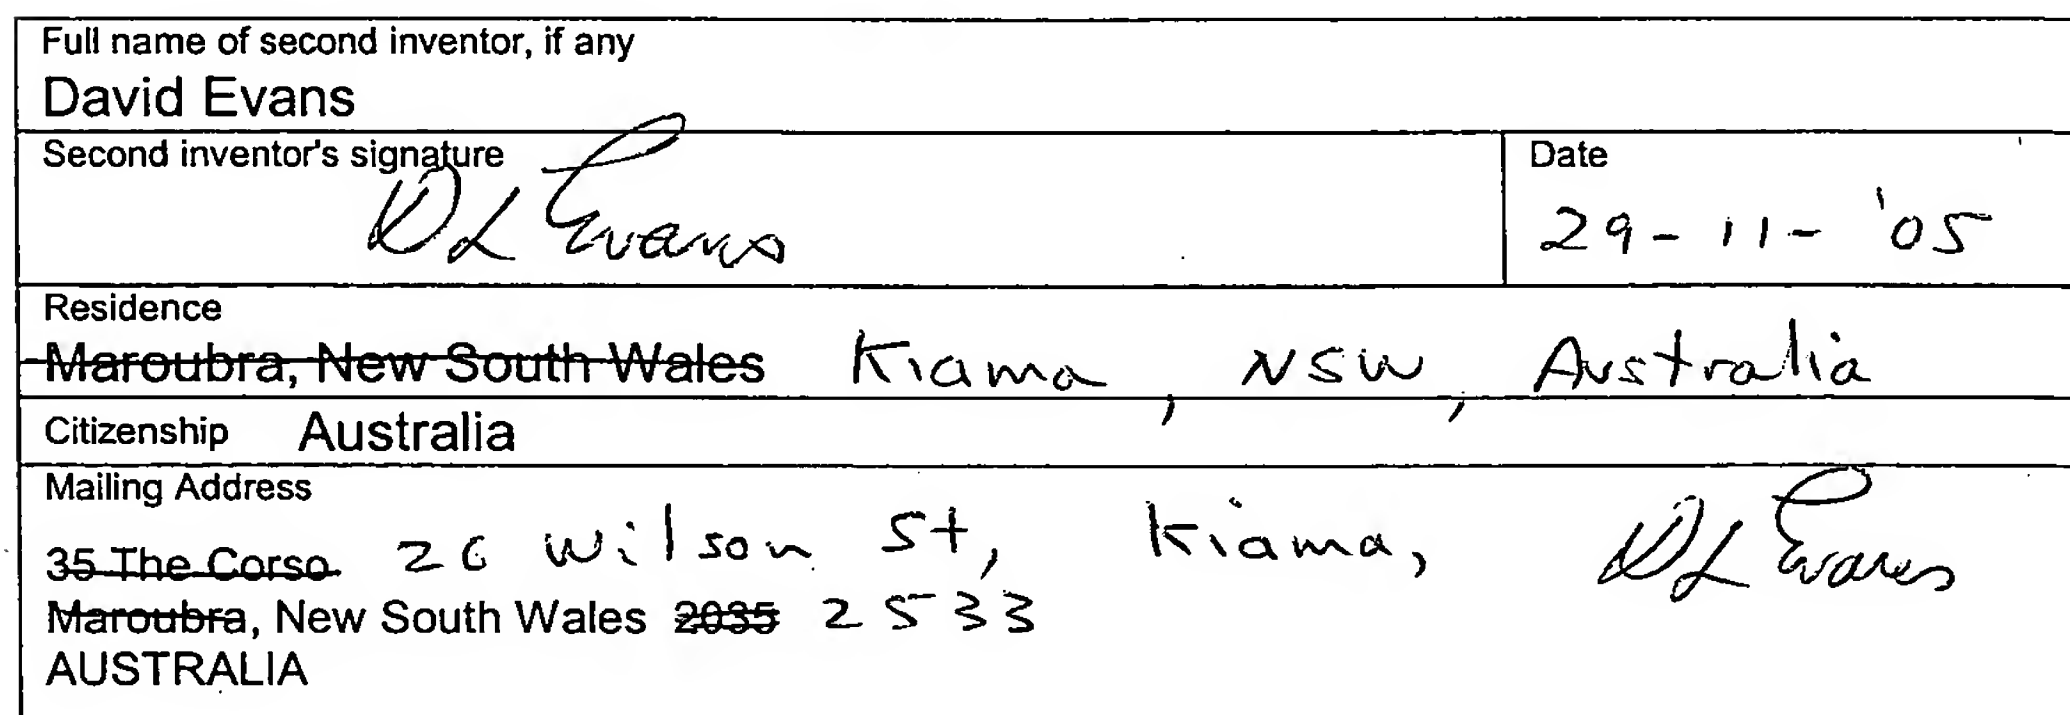 Full name of second inventor, if any
David Evans
Second inventor's signature
DL Evans
Date
29-11-'05
Residence
Maroubra, New South Wales Kiama, NSW, Australia
Citizenship Australia
Mailing Address
35 The Corso 26 Wilson St, Kiama, DL Evans
Maroubra, New South Wales 2035 2533
AUSTRALIA